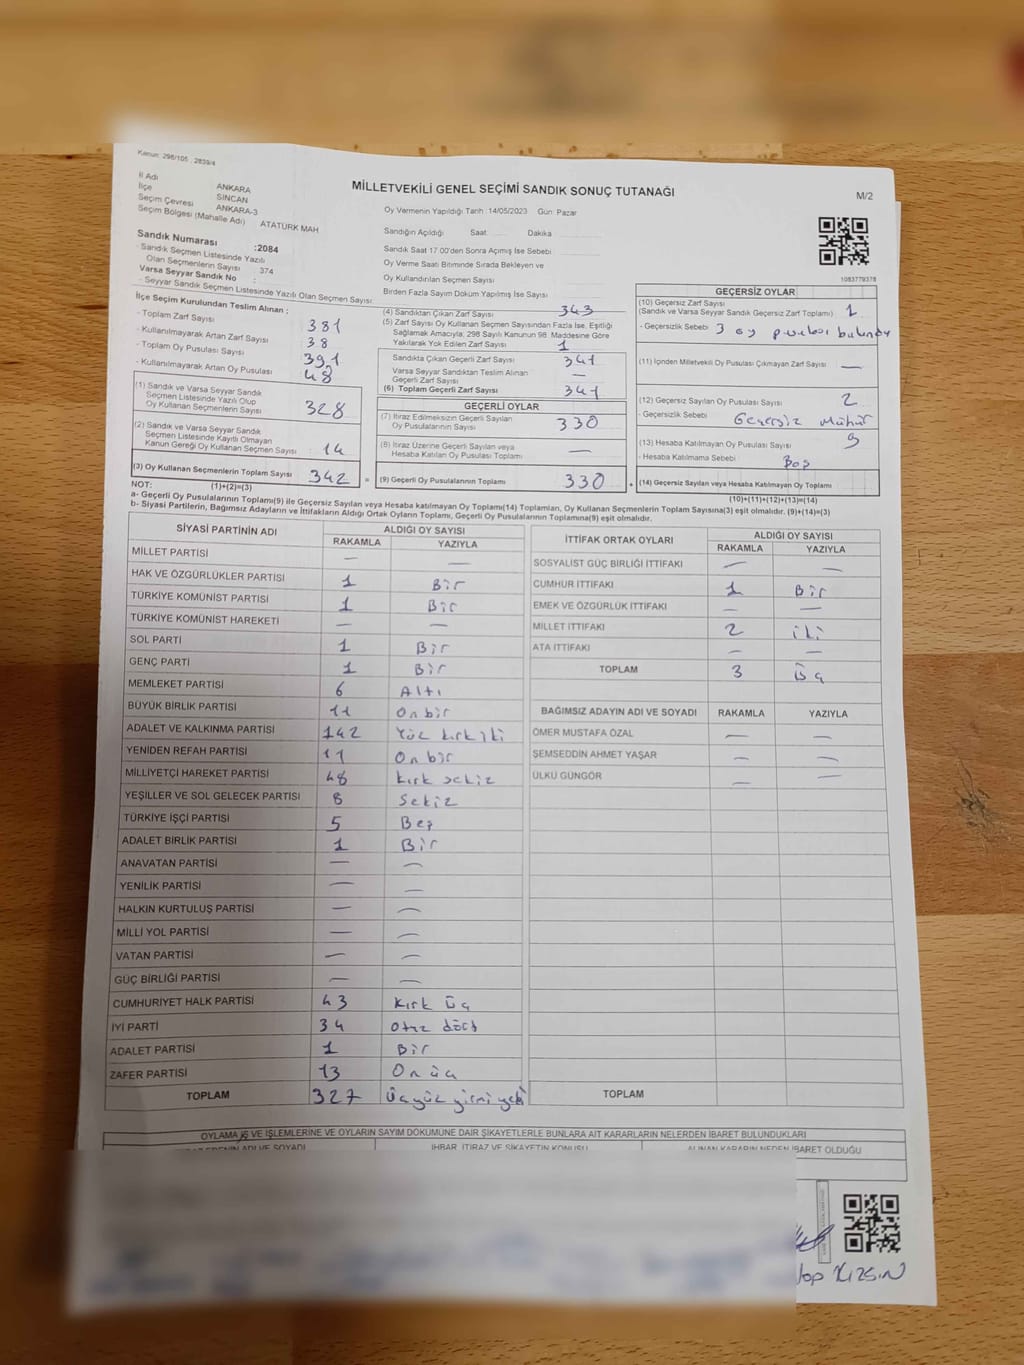 Kanun: 298/105 : 2839/4
MİLLETVEKİLİ GENEL SEÇİMİ SANDIK SONUÇ TUTANAĞI
M/2
İl Adı ANKARA
İlçe SİNCAN
Seçim Çevresi ANKARA-3
Seçim Bölgesi (Mahalle Adı) ATATÜRK MAH
Sandık Numarası :2084
- Sandık Seçmen Listesinde Yazılı
Olan Seçmenlerin Sayısı : 374
Varsa Seyyar Sandık No :
- Seyyar Sandık Seçmen Listesinde Yazılı Olan Seçmen Sayısı:
Oy Vermenin Yapıldığı Tarih :14/05/2023 Gün: Pazar
Sandığın Açıldığı Saat: Dakika
Sandık Saat 17.00'den Sonra Açımış İse Sebebi
Oy Verme Saati Bitiminde Sırada Bekleyen ve
Oy Kullandırılan Seçmen Sayısı
Birden Fazla Sayım Döküm Yapılmış İse Sayısı
1083779378
İlçe Seçim Kurulundan Teslim Alınan :
- Toplam Zarf Sayısı 381
- Kullanılmayarak Artan Zarf Sayısı 38
- Toplam Oy Pusulası Sayısı 391
- Kullanılmayarak Artan Oy Pusulası 48
(1) Sandık ve Varsa Seyyar Sandık
Seçmen Listesinde Yazılı Olup
Oy Kullanan Seçmenlerin Sayısı 328
(2) Sandık ve Varsa Seyyar Sandık
Seçmen Listesinde Kayıtlı Olmayan
Kanun Gereği Oy Kullanan Seçmen Sayısı : 14
(3) Oy Kullanan Seçmenlerin Toplam Sayısı 342 =
(4) Sandıktan Çıkan Zarf Sayısı 343
(5) Zarf Sayısı Oy Kullanan Seçmen Sayısından Fazla İse, Eşitliği
Sağlamak Amacıyla; 298 Sayılı Kanunun 98. Maddesine Göre
Yakılarak Yok Edilen Zarf Sayısı 1
Sandıkta Çıkan Geçerli Zarf Sayısı 341
Varsa Seyyar Sandıktan Teslim Alınan
Geçerli Zarf Sayısı —
(6) Toplam Geçerli Zarf Sayısı 341
GEÇERLİ OYLAR
(7) İtiraz Edilmeksizin Geçerli Sayılan
Oy Pusulalarının Sayısı 330
(8) İtiraz Üzerine Geçerli Sayılan veya
Hesaba Katılan Oy Pusulası Toplamı —
(9) Geçerli Oy Pusulalarının Toplamı 330 +
GEÇERSİZ OYLAR
(10) Geçersiz Zarf Sayısı
(Sandık ve Varsa Seyyar Sandık Geçersiz Zarf Toplamı) 1
- Geçersizlik Sebebi 3 oy pusulası bulundu
(11) İçinden Milletvekili Oy Pusulası Çıkmayan Zarf Sayısı —
(12) Geçersiz Sayılan Oy Pusulası Sayısı 2
- Geçersizlik Sebebi Geçersiz Mühür
(13) Hesaba Katılmayan Oy Pusulası Sayısı 9
- Hesaba Katılmama Sebebi Boş
(14) Geçersiz Sayılan veya Hesaba Katılmayan Oy Toplamı
NOT: (1)+(2)=(3)
(10)+(11)+(12)+(13)=(14)
a- Geçerli Oy Pusulalarının Toplamı(9) ile Geçersiz Sayılan veya Hesaba katılmayan Oy Toplamı(14) Toplamları, Oy Kullanan Seçmenlerin Toplam Sayısına(3) eşit olmalıdır. (9)+(14)=(3)
b- Siyasi Partilerin, Bağımsız Adayların ve İttifakların Aldığı Ortak Oyların Toplamı, Geçerli Oy Pusulalarının Toplamına(9) eşit olmalıdır.
SİYASİ PARTİNİN ADI ALDIĞI OY SAYISI
RAKAMLA YAZIYLA
MİLLET PARTİSİ — —
HAK VE ÖZGÜRLÜKLER PARTİSİ 1 Bir
TÜRKİYE KOMÜNİST PARTİSİ 1 Bir
TÜRKİYE KOMÜNİST HAREKETİ — —
SOL PARTİ 1 Bir
GENÇ PARTİ 1 Bir
MEMLEKET PARTİSİ 6 Altı
BÜYÜK BİRLİK PARTİSİ 11 On bir
ADALET VE KALKINMA PARTİSİ 142 Yüz kırk iki
YENİDEN REFAH PARTİSİ 11 On bir
MİLLİYETÇİ HAREKET PARTİSİ 48 kırk sekiz
YEŞİLLER VE SOL GELECEK PARTİSİ 8 Sekiz
TÜRKİYE İŞÇİ PARTİSİ 5 Beş
ADALET BİRLİK PARTİSİ 1 Bir
ANAVATAN PARTİSİ — —
YENİLİK PARTİSİ — —
HALKIN KURTULUŞ PARTİSİ — —
MİLLİ YOL PARTİSİ — —
VATAN PARTİSİ — —
GÜÇ BİRLİĞİ PARTİSİ — —
CUMHURİYET HALK PARTİSİ 43 kırk üç
İYİ PARTİ 34 Otuz dört
ADALET PARTİSİ 1 Bir
ZAFER PARTİSİ 13 On üç
TOPLAM 327 Üçyüz yirmi yedi
İTTİFAK ORTAK OYLARI ALDIĞI OY SAYISI
RAKAMLA YAZIYLA
SOSYALİST GÜÇ BİRLİĞİ İTTİFAKI — —
CUMHUR İTTİFAKI 1 Bir
EMEK VE ÖZGÜRLÜK İTTİFAKI — —
MİLLET İTTİFAKI 2 iki
ATA İTTİFAKI — —
TOPLAM 3 Üç
BAĞIMSIZ ADAYIN ADI VE SOYADI RAKAMLA YAZIYLA
ÖMER MUSTAFA ÖZAL — —
ŞEMSEDDİN AHMET YAŞAR — —
ÜLKÜ GÜNGÖR — —
TOPLAM
OYLAMA İŞ VE İŞLEMLERİNE VE OYLARIN SAYIM DÖKÜMÜNE DAİR ŞİKAYETLERLE BUNLARA AİT KARARLARIN NELERDEN İBARET BULUNDUKLARI
EDENİN ADI VE SOYADI İHBAR, İTİRAZ VE ŞİKAYETİN KONUSU ALINAN KARARIN NEDEN İBARET OLDUĞU